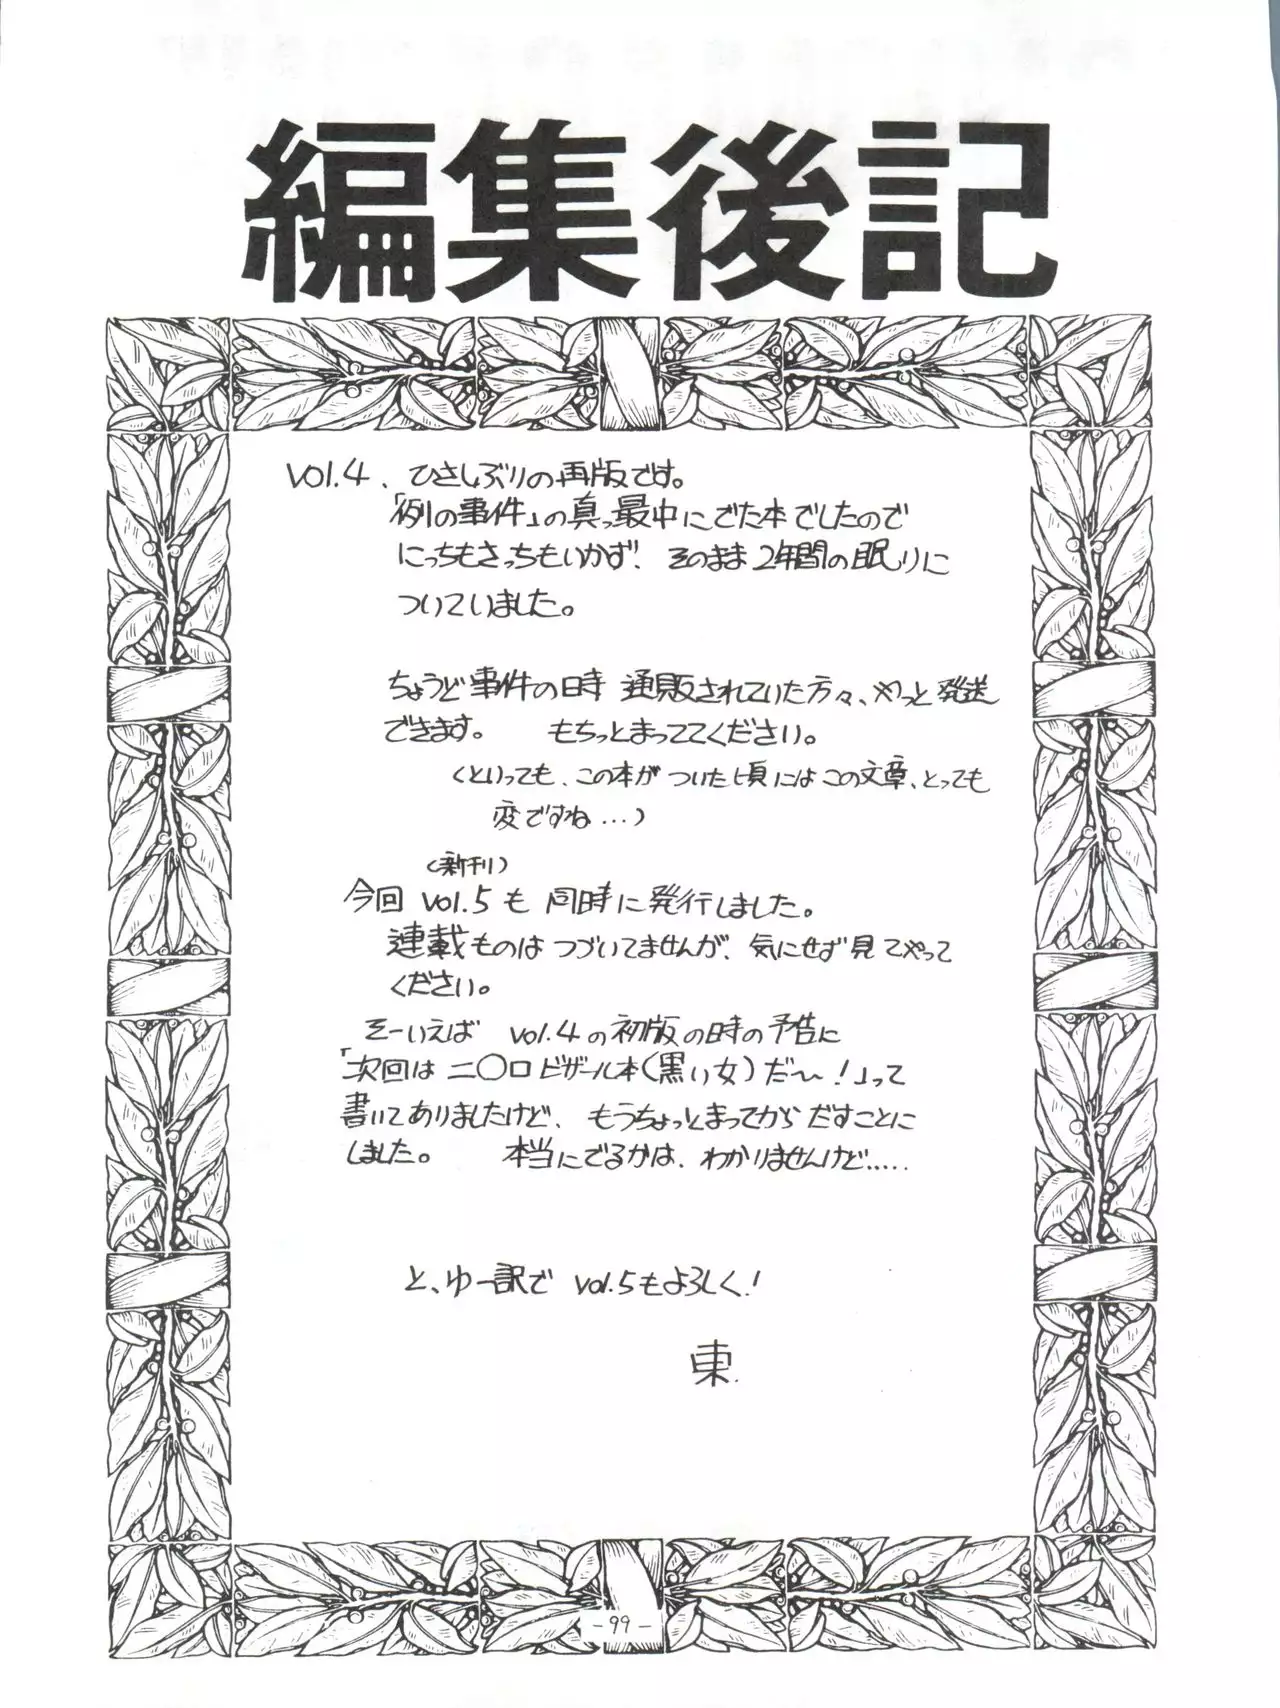 編集後記
vol.4、ひさしぶりの再版です。
「例の事件」の真っ最中にでた本でしたので
にっちもさっちもいかず、そのまま2年間の眠りに
ついていました。
ちょうど事件の時 通販されていた方々、やっと発送
できます。 もちっとまっててください。
(といっても、この本がついた頃にはこの文章、とっても
変ですね…)
(新刊)
今回 vol.5も 同時に発行しました。
連載ものはつづいてませんが、気にせず見てやって
ください。
そーいえば vol.4の初版の時の予告に
「次回は二〇口ビザール本(黒い女)だ〜!」って
書いてありましたけど、もうちょっとまってからだすことに
しました。 本当にでるかは、わかりませんけど.....
と、ゆー訳で vol.5もよろしく!
東.
- 99 -